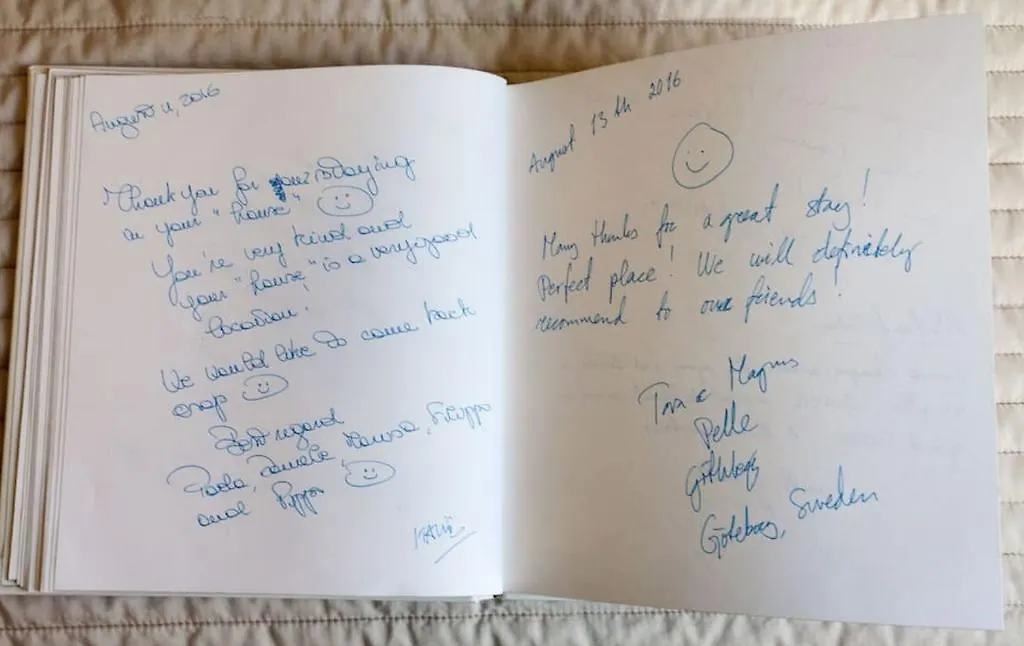 August 11, 2016
Thank you for staying
in your "house"
You're very kind and
your "house" is a very good
location.
We would like to come back
asap
Best regard
Paola, Daniele, Marisa, Filippo
and Pippo
August 13th 2016
Many thanks for a great stay!
Perfect place! We will definitely
recommend to our friends!
Magnus
Pelle
Göteborg, Sweden